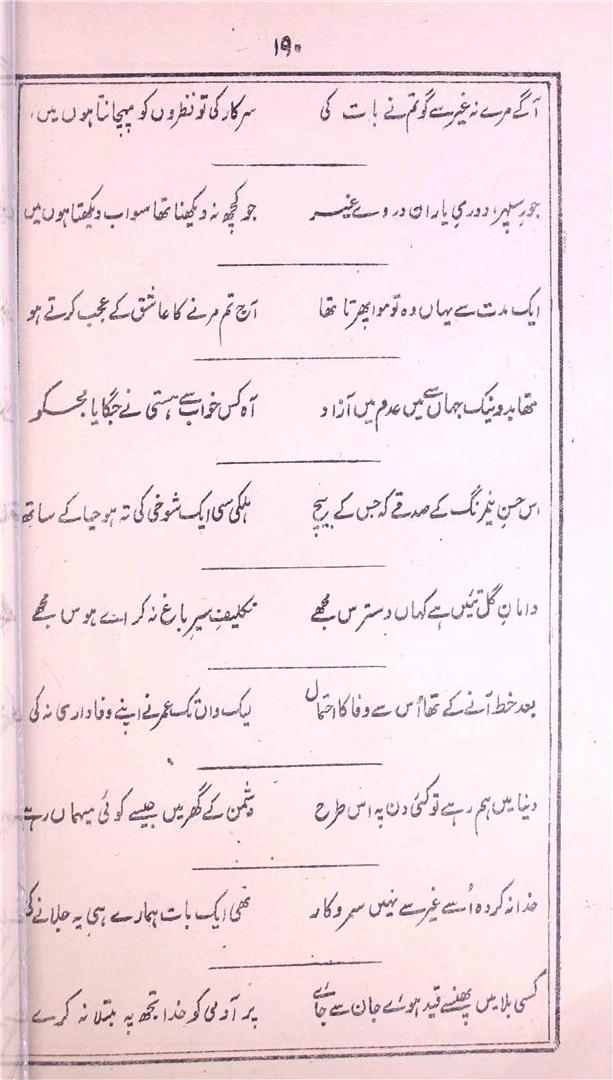 ۱۹۰
آگے مرے نہ غیر سے گو تم نے بات کی سرکار کی تو نظروں کو پہچانتا ہوں میں
جور سپہر، دوریِ یاران و روے غیر جو کچھ نہ دیکھنا تھا سو اب دیکھتا ہوں میں
ایک مدت سے یہاں وہ تو موا پھرتا تھا آج تم مرنے کا عاشق کے عجب کرتے ہو
تھا بد و نیک جہاں سے میں عدم میں آزاد آہ کس خواب سے ہستی نے جگایا مجھ کو
اس حسن نیمرنگ کے صدقے کہ جس کے بیچ ہلکی سی ایک شوخی کی تہ ہو حیا کے ساتھ
دامان گل تئیں ہے کہاں دسترس مجھے تکلیف سیر باغ نہ کر اے ہوس مجھے
بعد خط آنے کے تھا اُس سے وفا کا احتمال لیک واں تک عمر نے اپنے وفاداری نہ کی
دنیا میں ہم رہے تو کئی دن پہ اس طرح دشمن کے گھر میں جیسے کوئی میہماں رہے
خدا نہ کردہ اُسے غیر سے نہیں سروکار تھی ایک بات ہمارے ہی یہ جلانے کی
کسی بلا میں پھنسے قید ہوے جان سے جاے پر آدمی کو خدا تجھ پہ مبتلا نہ کرے